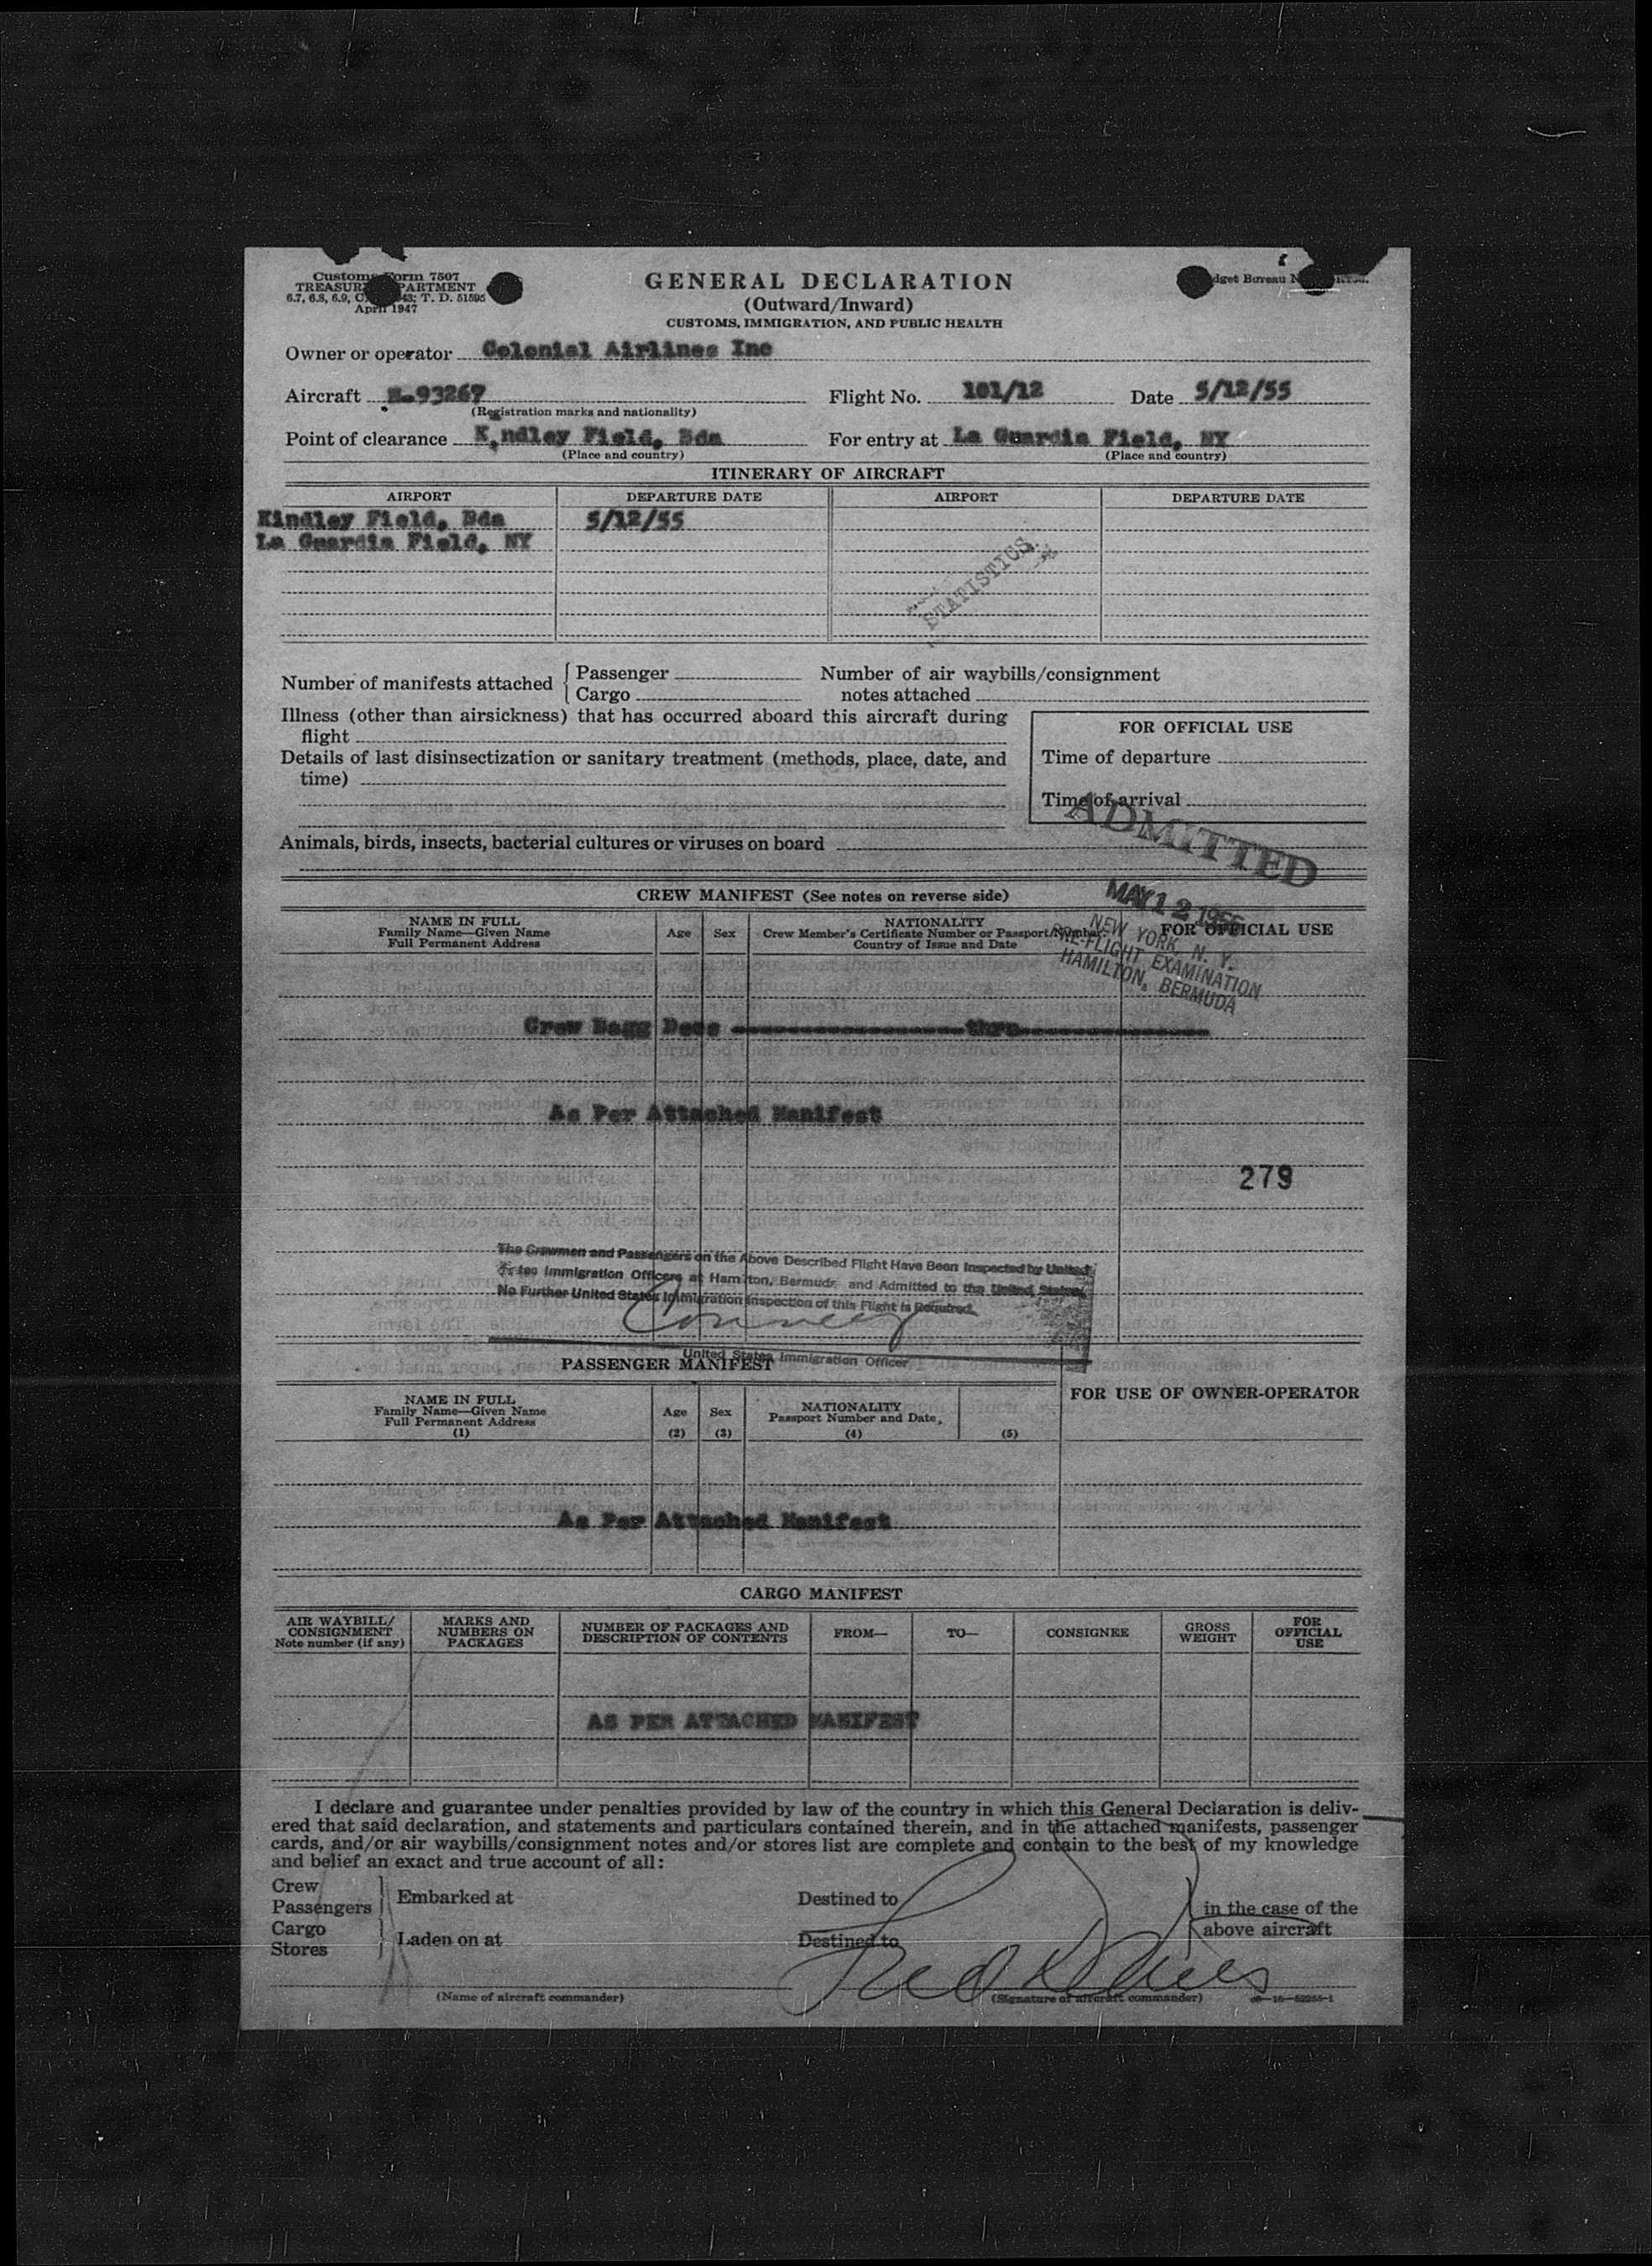 Customs Form 7507
TREASURY DEPARTMENT
6.7, 6.8, 6.9, C. 43; T. D. 51595
April 1947
GENERAL DECLARATION
(Outward/Inward)
CUSTOMS, IMMIGRATION, AND PUBLIC HEALTH
dget Bureau N
Owner or operator Colonial Airlines Inc
Aircraft N-93267 Flight No. 101/12 Date 5/12/55
(Registration marks and nationality)
Point of clearance K,ndley Field, Bda For entry at La Guardia Field, NY
(Place and country) (Place and country)
ITINERARY OF AIRCRAFT
AIRPORT DEPARTURE DATE AIRPORT DEPARTURE DATE
Kindley Field, Bda 5/12/55
La Guardia Field, NY
STATISTICS
Number of manifests attached { Passenger
Cargo
Number of air waybills/consignment
notes attached
Illness (other than airsickness) that has occurred aboard this aircraft during
flight
Details of last disinsectization or sanitary treatment (methods, place, date, and
time)
FOR OFFICIAL USE
Time of departure
Time of arrival
Animals, birds, insects, bacterial cultures or viruses on board
ADMITTED
MAY 12 1955
NEW YORK, N. Y.
PRE-FLIGHT EXAMINATION
HAMILTON, BERMUDA
CREW MANIFEST (See notes on reverse side)
NAME IN FULL
Family Name—Given Name
Full Permanent Address
Age Sex
NATIONALITY
Crew Member's Certificate Number or Passport Number,
Country of Issue and Date
FOR OFFICIAL USE
Crew Bagg Decs thru
As Per Attached Manifest
279
The Crewmen and Passengers on the Above Described Flight Have Been Inspected by United
States Immigration Officers at Hamilton, Bermuda and Admitted to the United States.
No Further United States Immigration Inspection of this Flight is Required.
United States Immigration Officer
PASSENGER MANIFEST
NAME IN FULL
Family Name—Given Name
Full Permanent Address
(1)
Age
(2)
Sex
(3)
NATIONALITY
Passport Number and Date,
(4)
(5)
FOR USE OF OWNER-OPERATOR
As Per Attached Manifest
CARGO MANIFEST
AIR WAYBILL/
CONSIGNMENT
Note number (if any)
MARKS AND
NUMBERS ON
PACKAGES
NUMBER OF PACKAGES AND
DESCRIPTION OF CONTENTS
FROM—
TO—
CONSIGNEE
GROSS
WEIGHT
FOR
OFFICIAL
USE
AS PER ATTACHED MANIFEST
I declare and guarantee under penalties provided by law of the country in which this General Declaration is deliv-
ered that said declaration, and statements and particulars contained therein, and in the attached manifests, passenger
cards, and/or air waybills/consignment notes and/or stores list are complete and contain to the best of my knowledge
and belief an exact and true account of all:
Crew
Passengers
Embarked at Destined to
Cargo
Stores
Laden on at Destined to
in the case of the
above aircraft
(Name of aircraft commander) (Signature of aircraft commander)